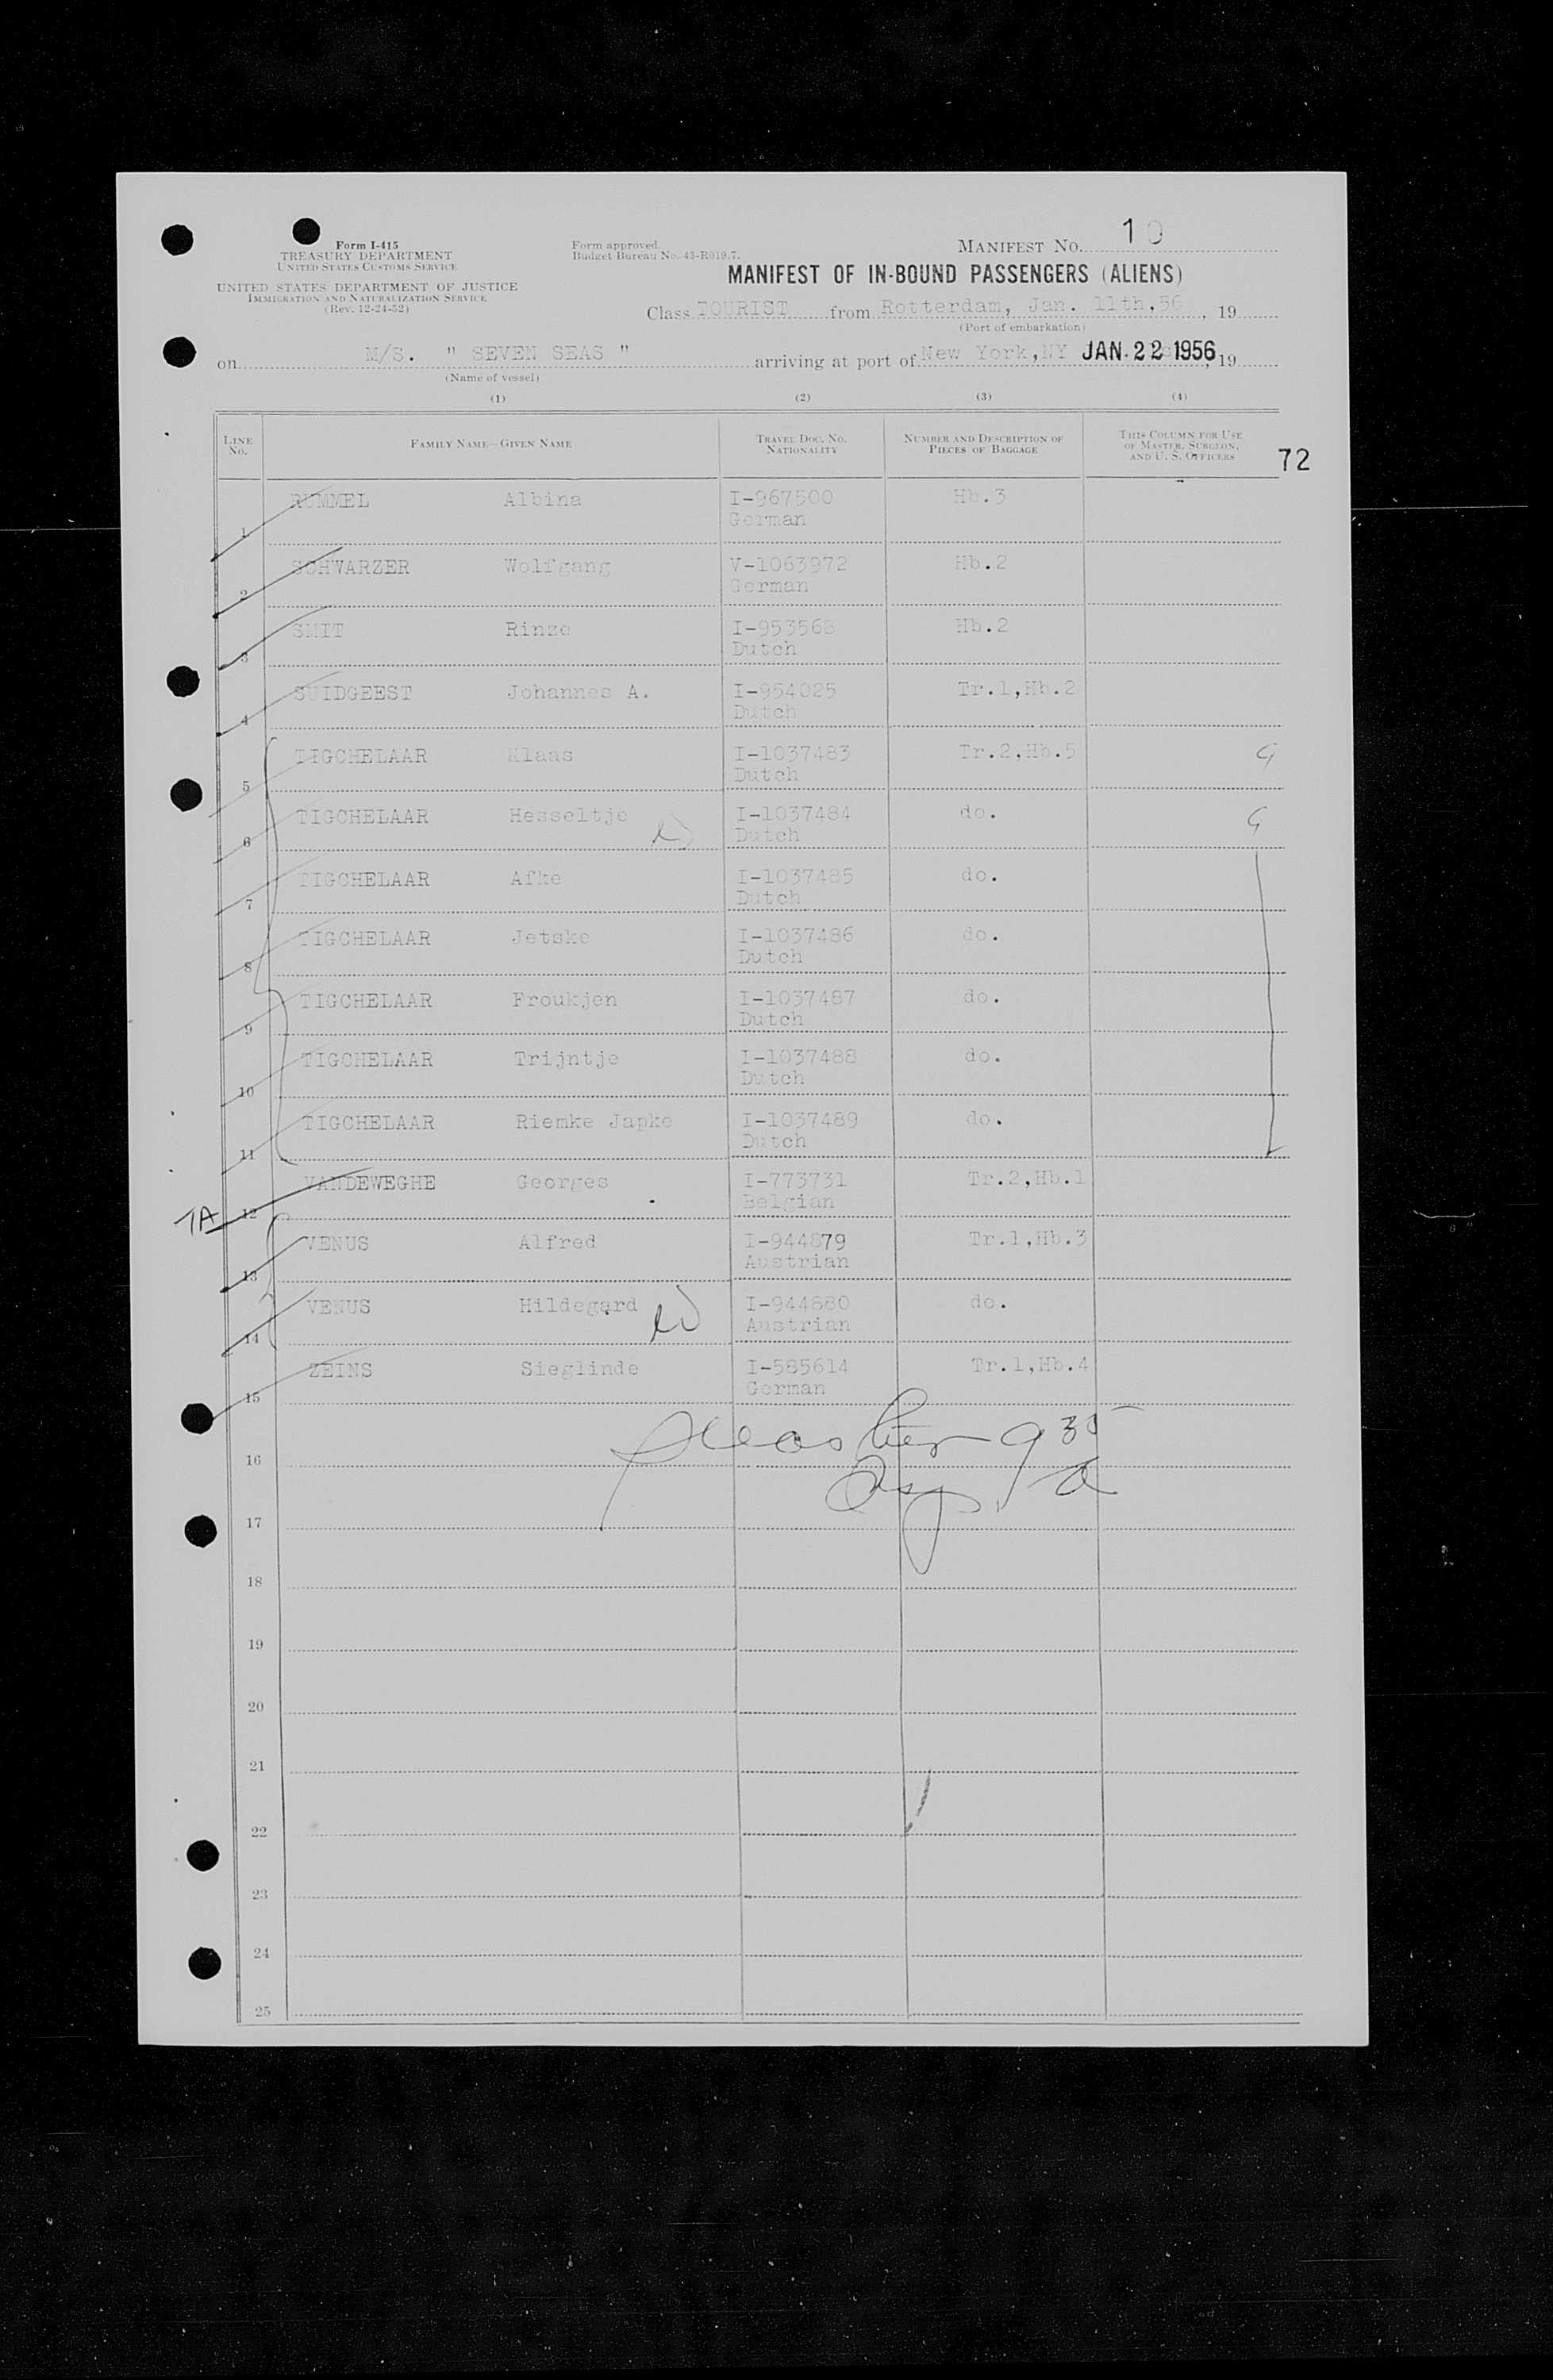 Form I-415
TREASURY DEPARTMENT
UNITED STATES CUSTOMS SERVICE
UNITED STATES DEPARTMENT OF JUSTICE
IMMIGRATION AND NATURALIZATION SERVICE
(Rev. 12-24-52)
Form approved.
Budget Bureau No. 43-R019.7.
MANIFEST NO. 10
MANIFEST OF IN-BOUND PASSENGERS (ALIENS)
Class TOURIST from Rotterdam, Jan. 11th, 56, 19
(Port of embarkation)
on M/S. " SEVEN SEAS " arriving at port of New York, NY JAN. 22 1956, 19
(Name of vessel)
(1) (2) (3) (4)
LINE NO. FAMILY NAME—GIVEN NAME TRAVEL DOC. NO. NATIONALITY NUMBER AND DESCRIPTION OF PIECES OF BAGGAGE THIS COLUMN FOR USE OF MASTER, SURGEON, AND U. S. OFFICERS
72
1 RUMMEL Albina I-967500 Hb.3
German
2 SCHWARZER Wolfgang V-1063972 Hb.2
German
3 SMIT Rinze I-953568 Hb.2
Dutch
4 SUIDGEEST Johannes A. I-954025 Tr.1,Hb.2
Dutch
5 TIGCHELAAR Klaas I-1037483 Tr.2,Hb.5 G
Dutch
6 TIGCHELAAR Hesseltje I-1037484 do. G
Dutch
7 TIGCHELAAR Afke I-1037485 do.
Dutch
8 TIGCHELAAR Jetske I-1037486 do.
Dutch
9 TIGCHELAAR Froukjen I-1037487 do.
Dutch
10 TIGCHELAAR Trijntje I-1037488 do.
Dutch
11 TIGCHELAAR Riemke Japke I-1037489 do.
Dutch
TA 12 VANDEWEGHE Georges I-773731 Tr.2,Hb.1
Belgian
13 VENUS Alfred I-944879 Tr.1,Hb.3
Austrian
14 VENUS Hildegard I-944880 do.
Austrian
15 ZEINS Sieglinde I-585614 Tr.1,Hb.4
German
16
17
18
19
20
21
22
23
24
25